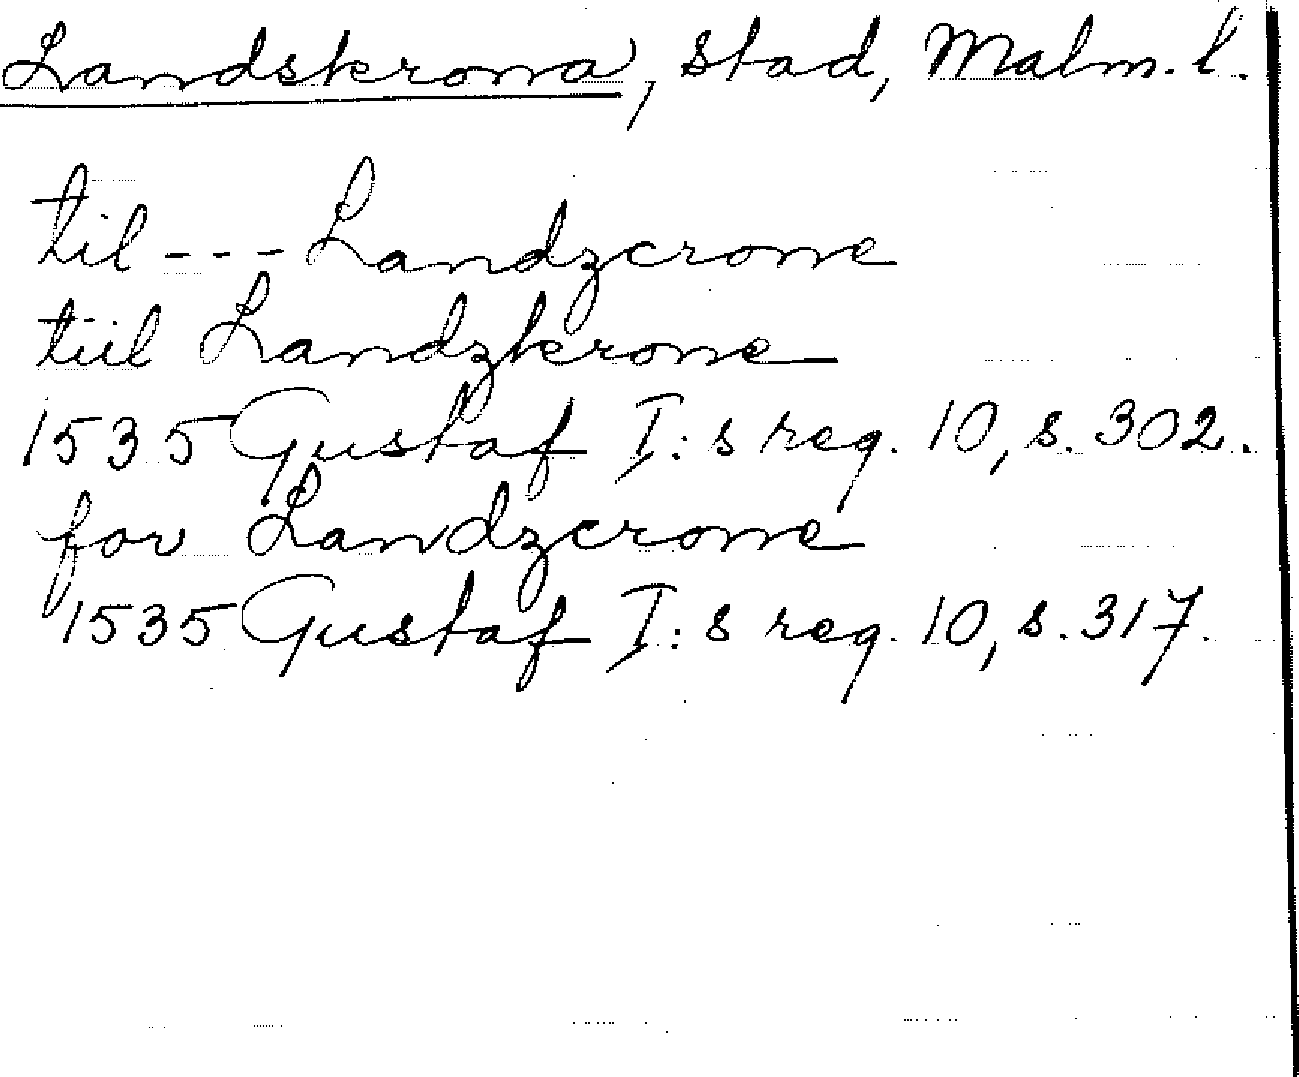 Landskrona, stad, Malm. l.
til --- Landzcrone
tiil Landzkrone
1535 Gustaf I:s reg. 10, s. 302.
for Landzcrone
1535 Gustaf I:s reg. 10, s. 317.